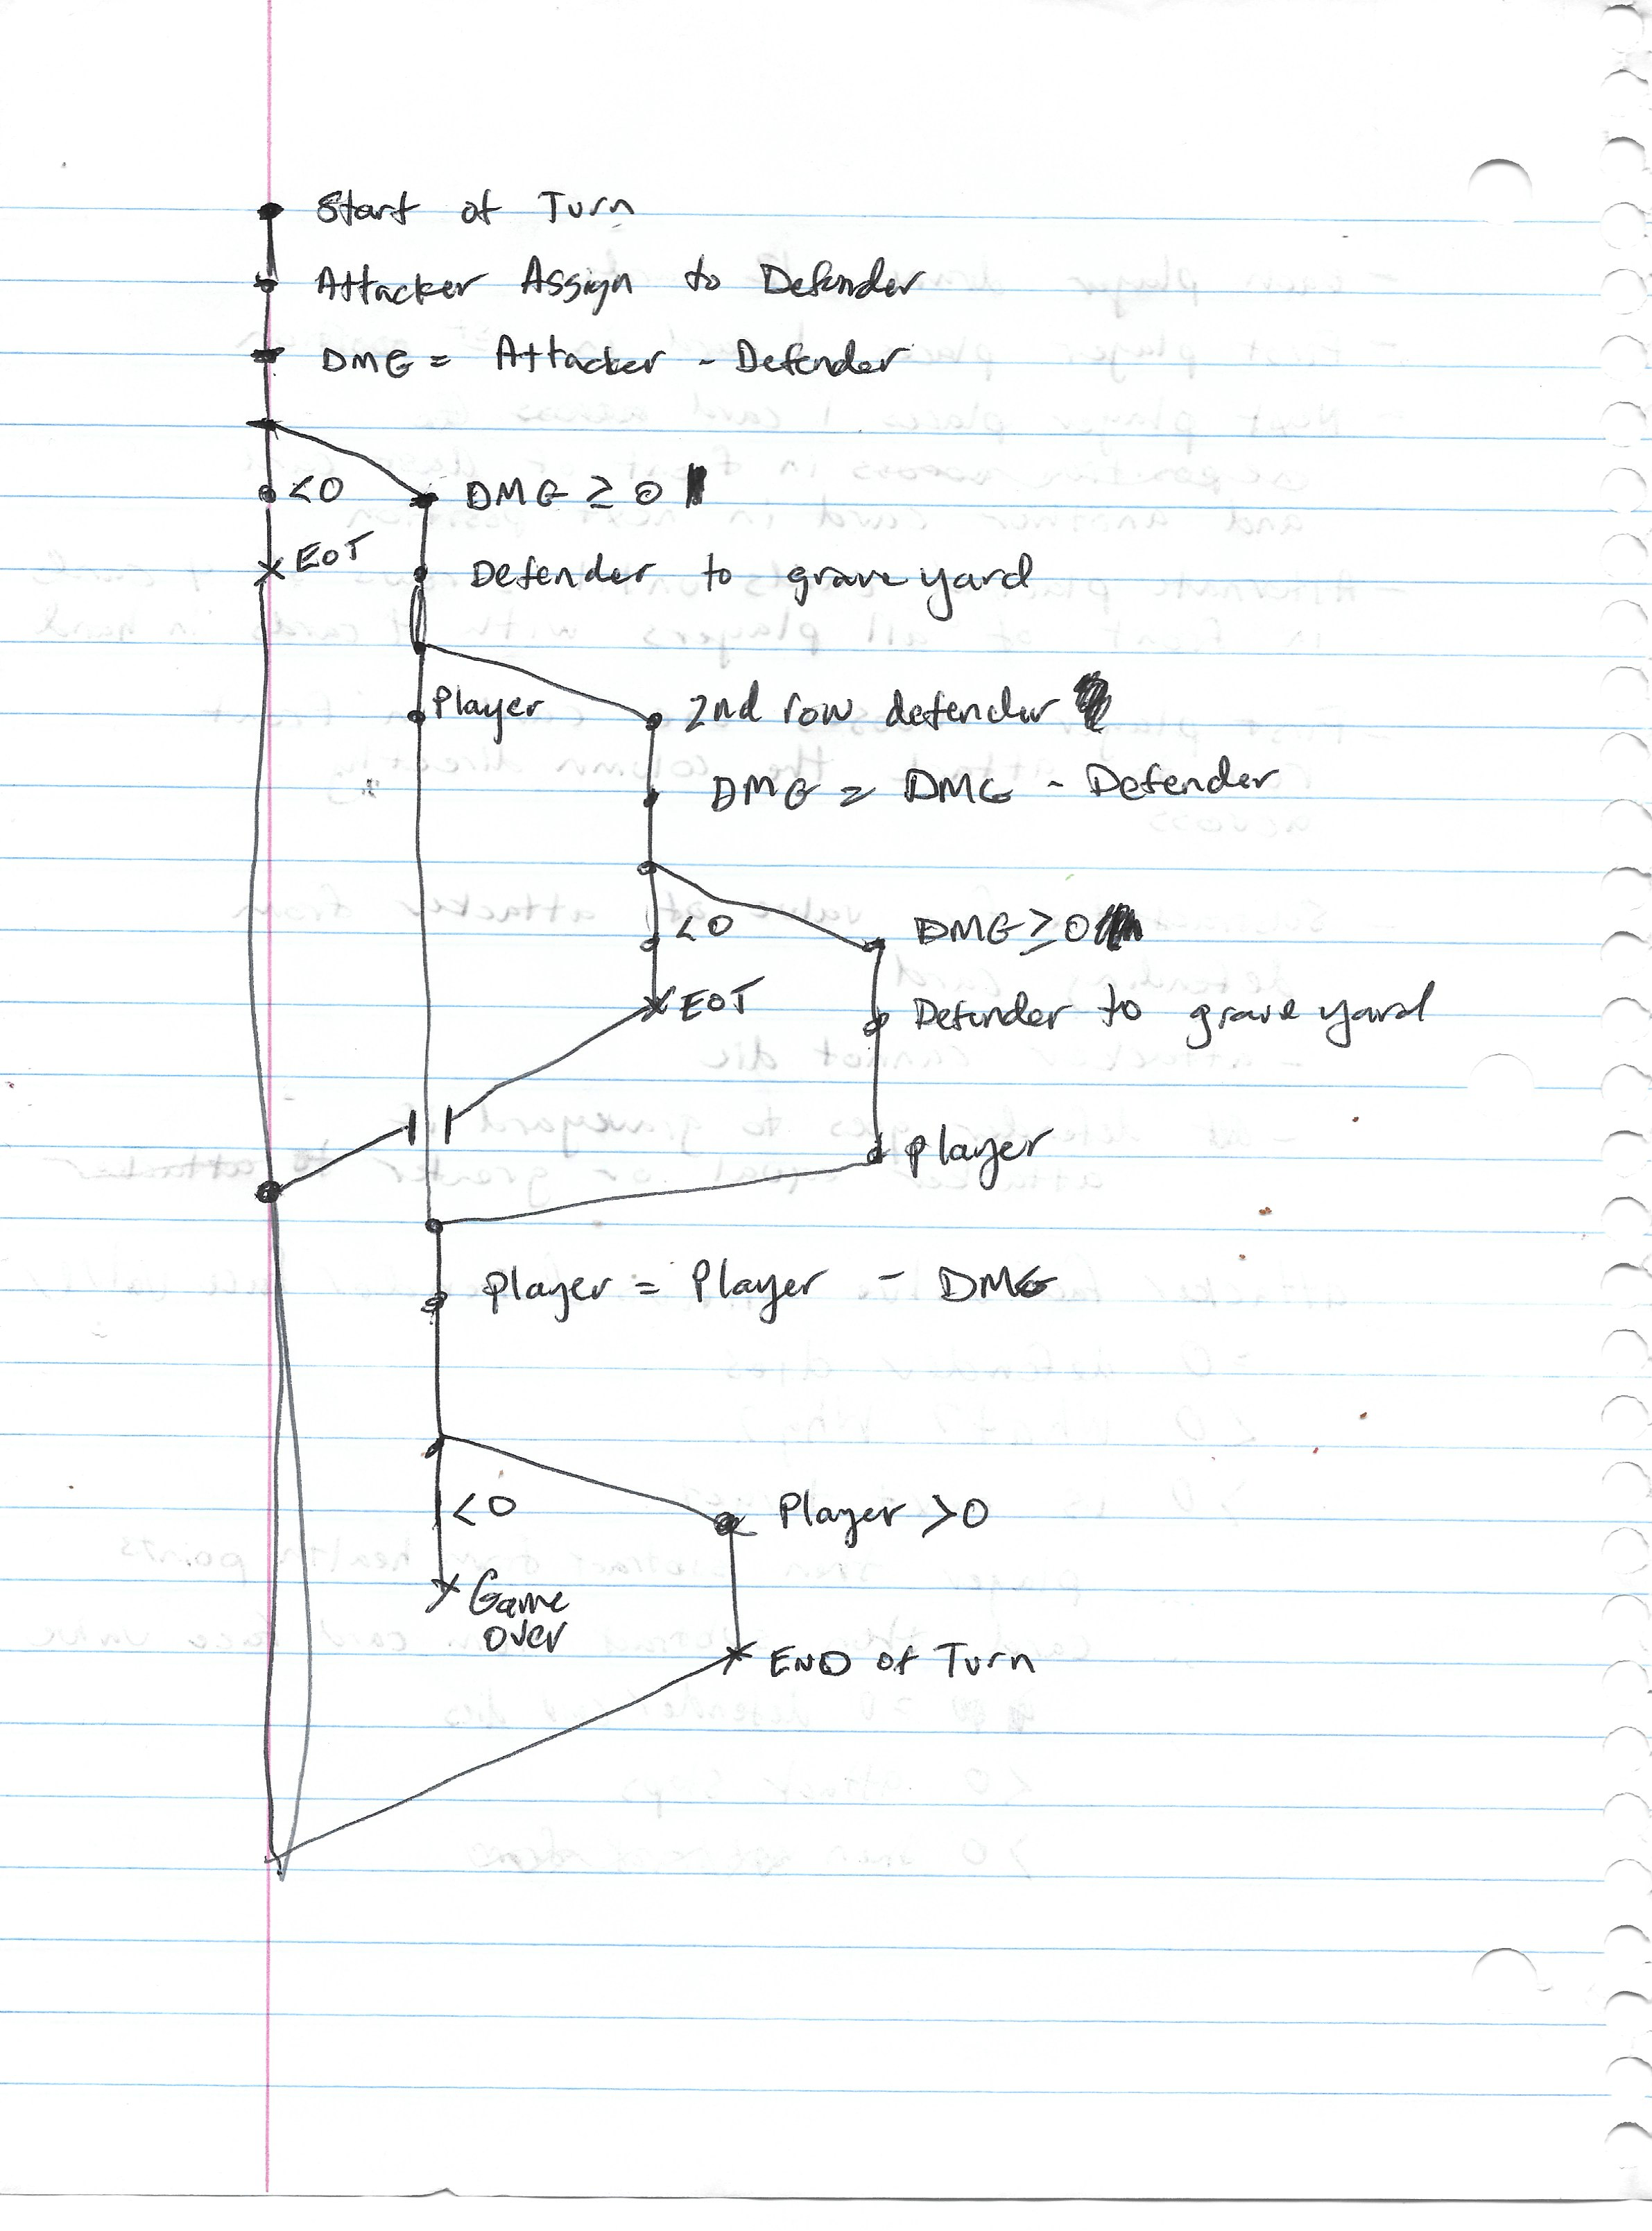 Start of Turn
Attacker Assign to Defender
DMG = Attacker - Defender
<0 DMG ≥ 0
EOT Defender to grave yard
Player 2nd row defender
DMG = DMG - Defender
<0 DMG ≥ 0
EOT Defender to grave yard
player
player = Player - DMG
<0 Player >0
Game
over
END of Turn